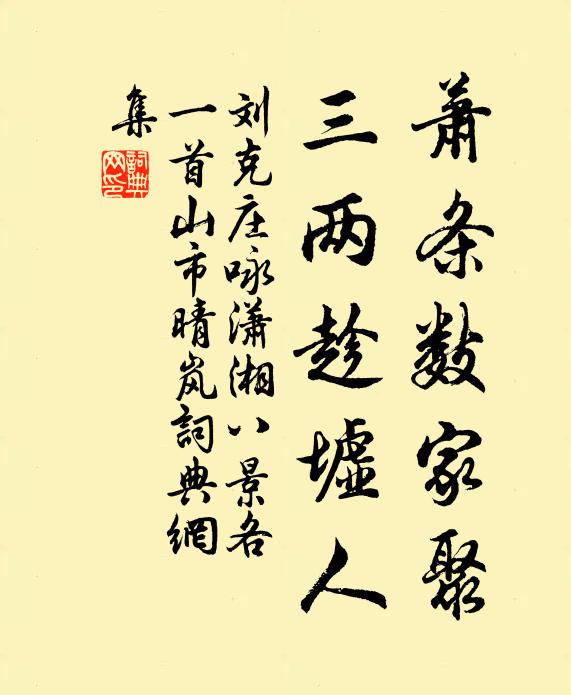 萧条数家聚
三两趁墟人
刘克庄咏潇湘八景各
一首山市晴岚词典網
集
詞典网印